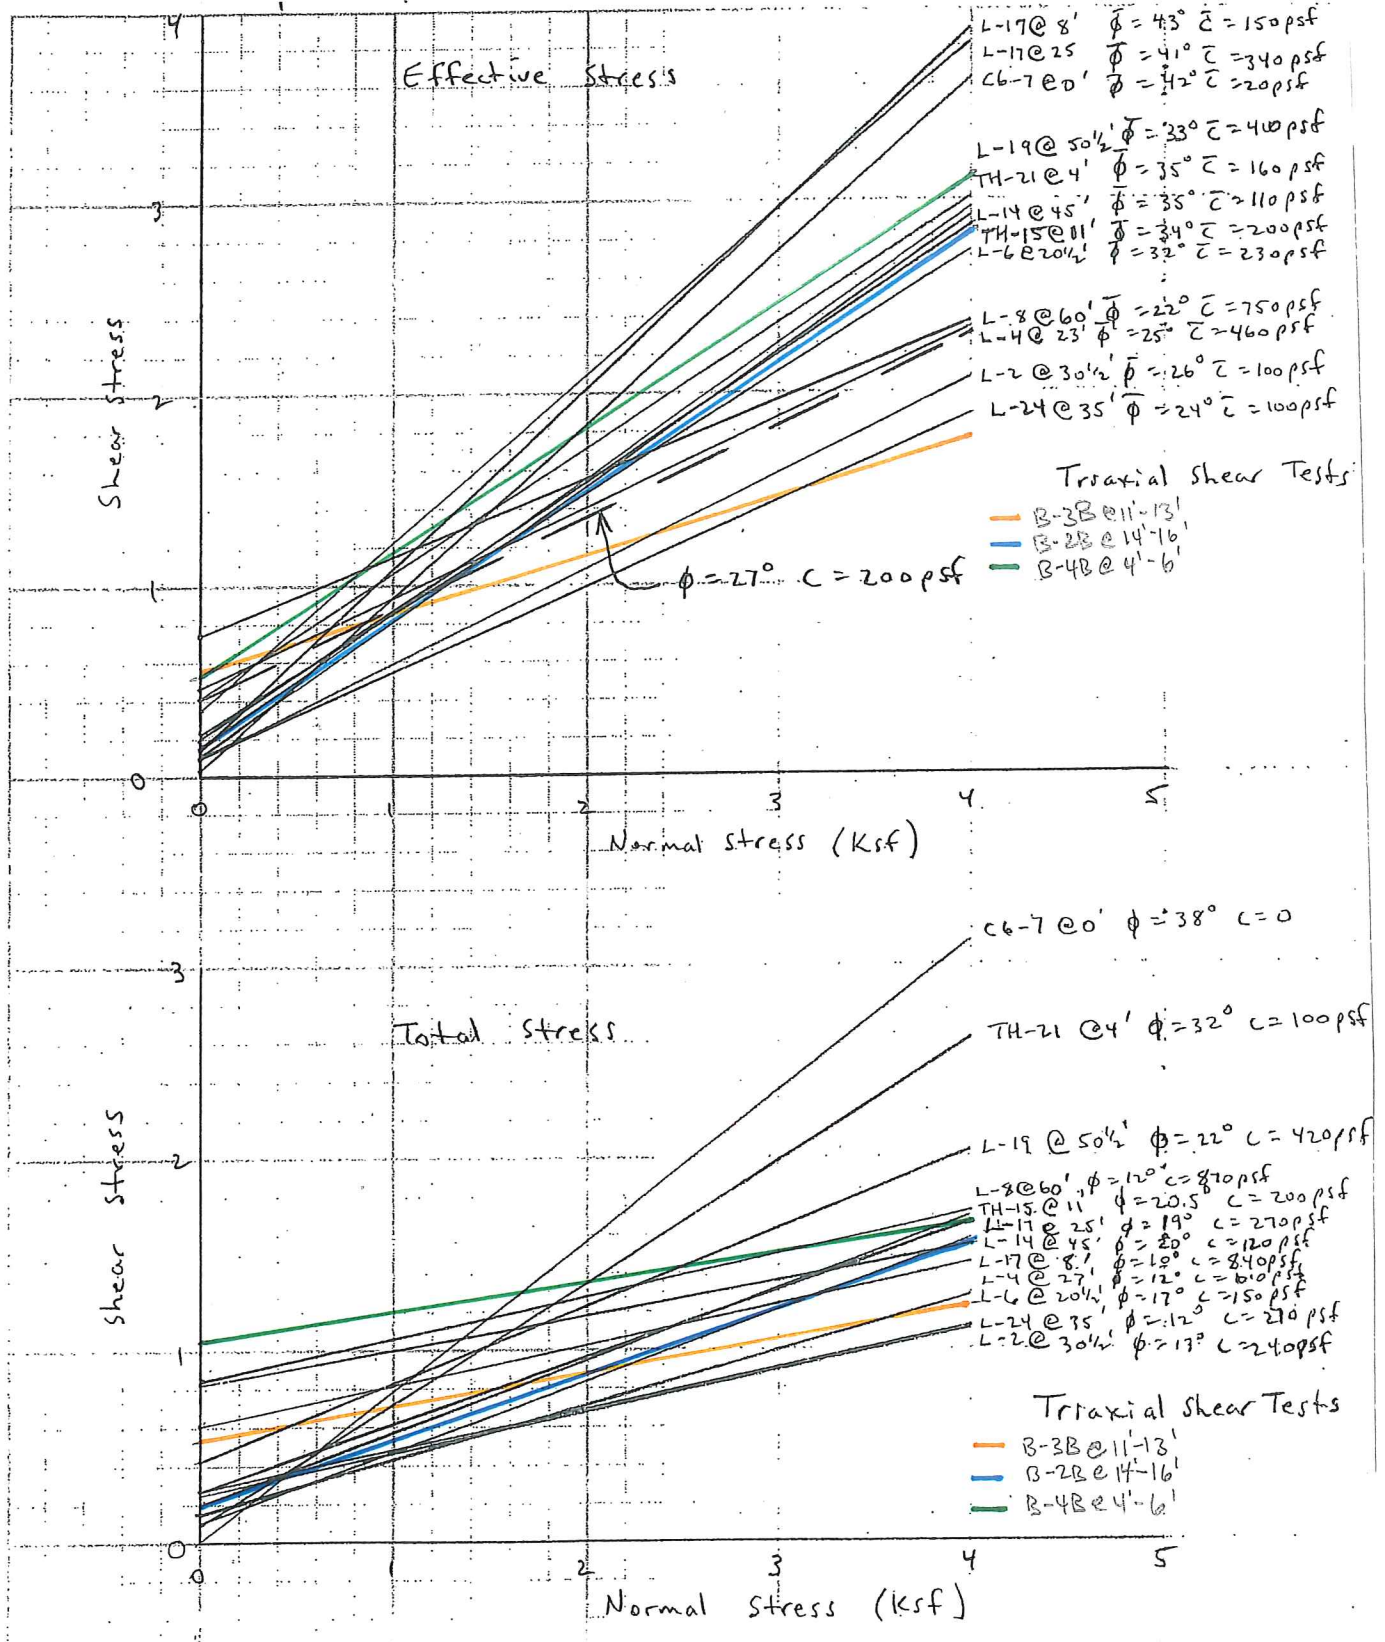 4
Effective Stress
L-17@ 8' φ̄ = 43° c̄ = 150psf
L-17@25 φ̄ = 41° c̄ = 340psf
C6-7@0' φ̄ = 42° c̄ = 20psf
L-19@ 50½' φ̄ = 33° c̄ = 400psf
TH-21@4' φ̄ = 35° c̄ = 160psf
3
L-14@45' φ̄ = 35° c̄ = 110psf
TH-15@11' φ̄ = 34° c̄ = 200psf
L-6@20½' φ̄ = 32° c̄ = 230psf
L-8@60' φ̄ = 22° c̄ = 750psf
L-4@ 23' φ̄ = 25° c̄ = 460psf
L-2 @ 30½' φ̄ = 26° c̄ = 100psf
2
L-24@35' φ̄ = 24° c̄ = 100psf
Shear Stress
Triaxial Shear Tests
B-3B@11'-13'
B-2B@14'-16'
B-4B@4'-6'
1
φ = 27° c = 200psf
0
0 1 2 3 4 5
Normal Stress (Ksf)
C6-7@0' φ = 38° c = 0
3
Total Stress
TH-21 @4' φ = 32° c = 100psf
Shear Stress
2
L-19 @ 50½' φ = 22° c = 420psf
L-8@60' φ = 12° c = 870psf
TH-15@11' φ = 20.5° c = 200psf
L-17@25' φ = 19° c = 270psf
L-14@45' φ = 20° c = 120psf
L-17@8' φ = 10° c = 840psf
L-4@27' φ = 12° c = 610psf
L-6@20½' φ = 17° c = 150psf
L-24@35' φ = 12° c = 270psf
L-2@30½' φ = 13° c = 240psf
1
Triaxial Shear Tests
B-3B@11'-13'
B-2B@14'-16'
B-4B@4'-6'
0
0 1 2 3 4 5
Normal Stress (Ksf)